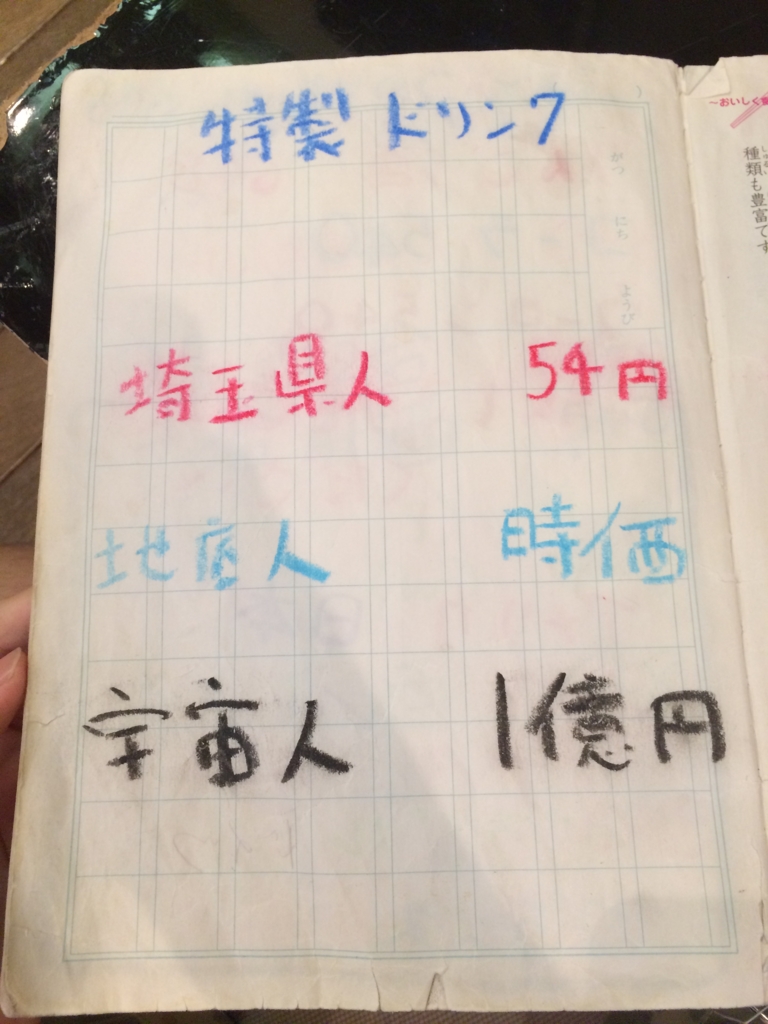 特製ドリンク
埼玉県人 54円
地底人 時価
宇宙人 1億円
がつ
にち
ようび
~おいしく
種類も豊富です
しゅるい